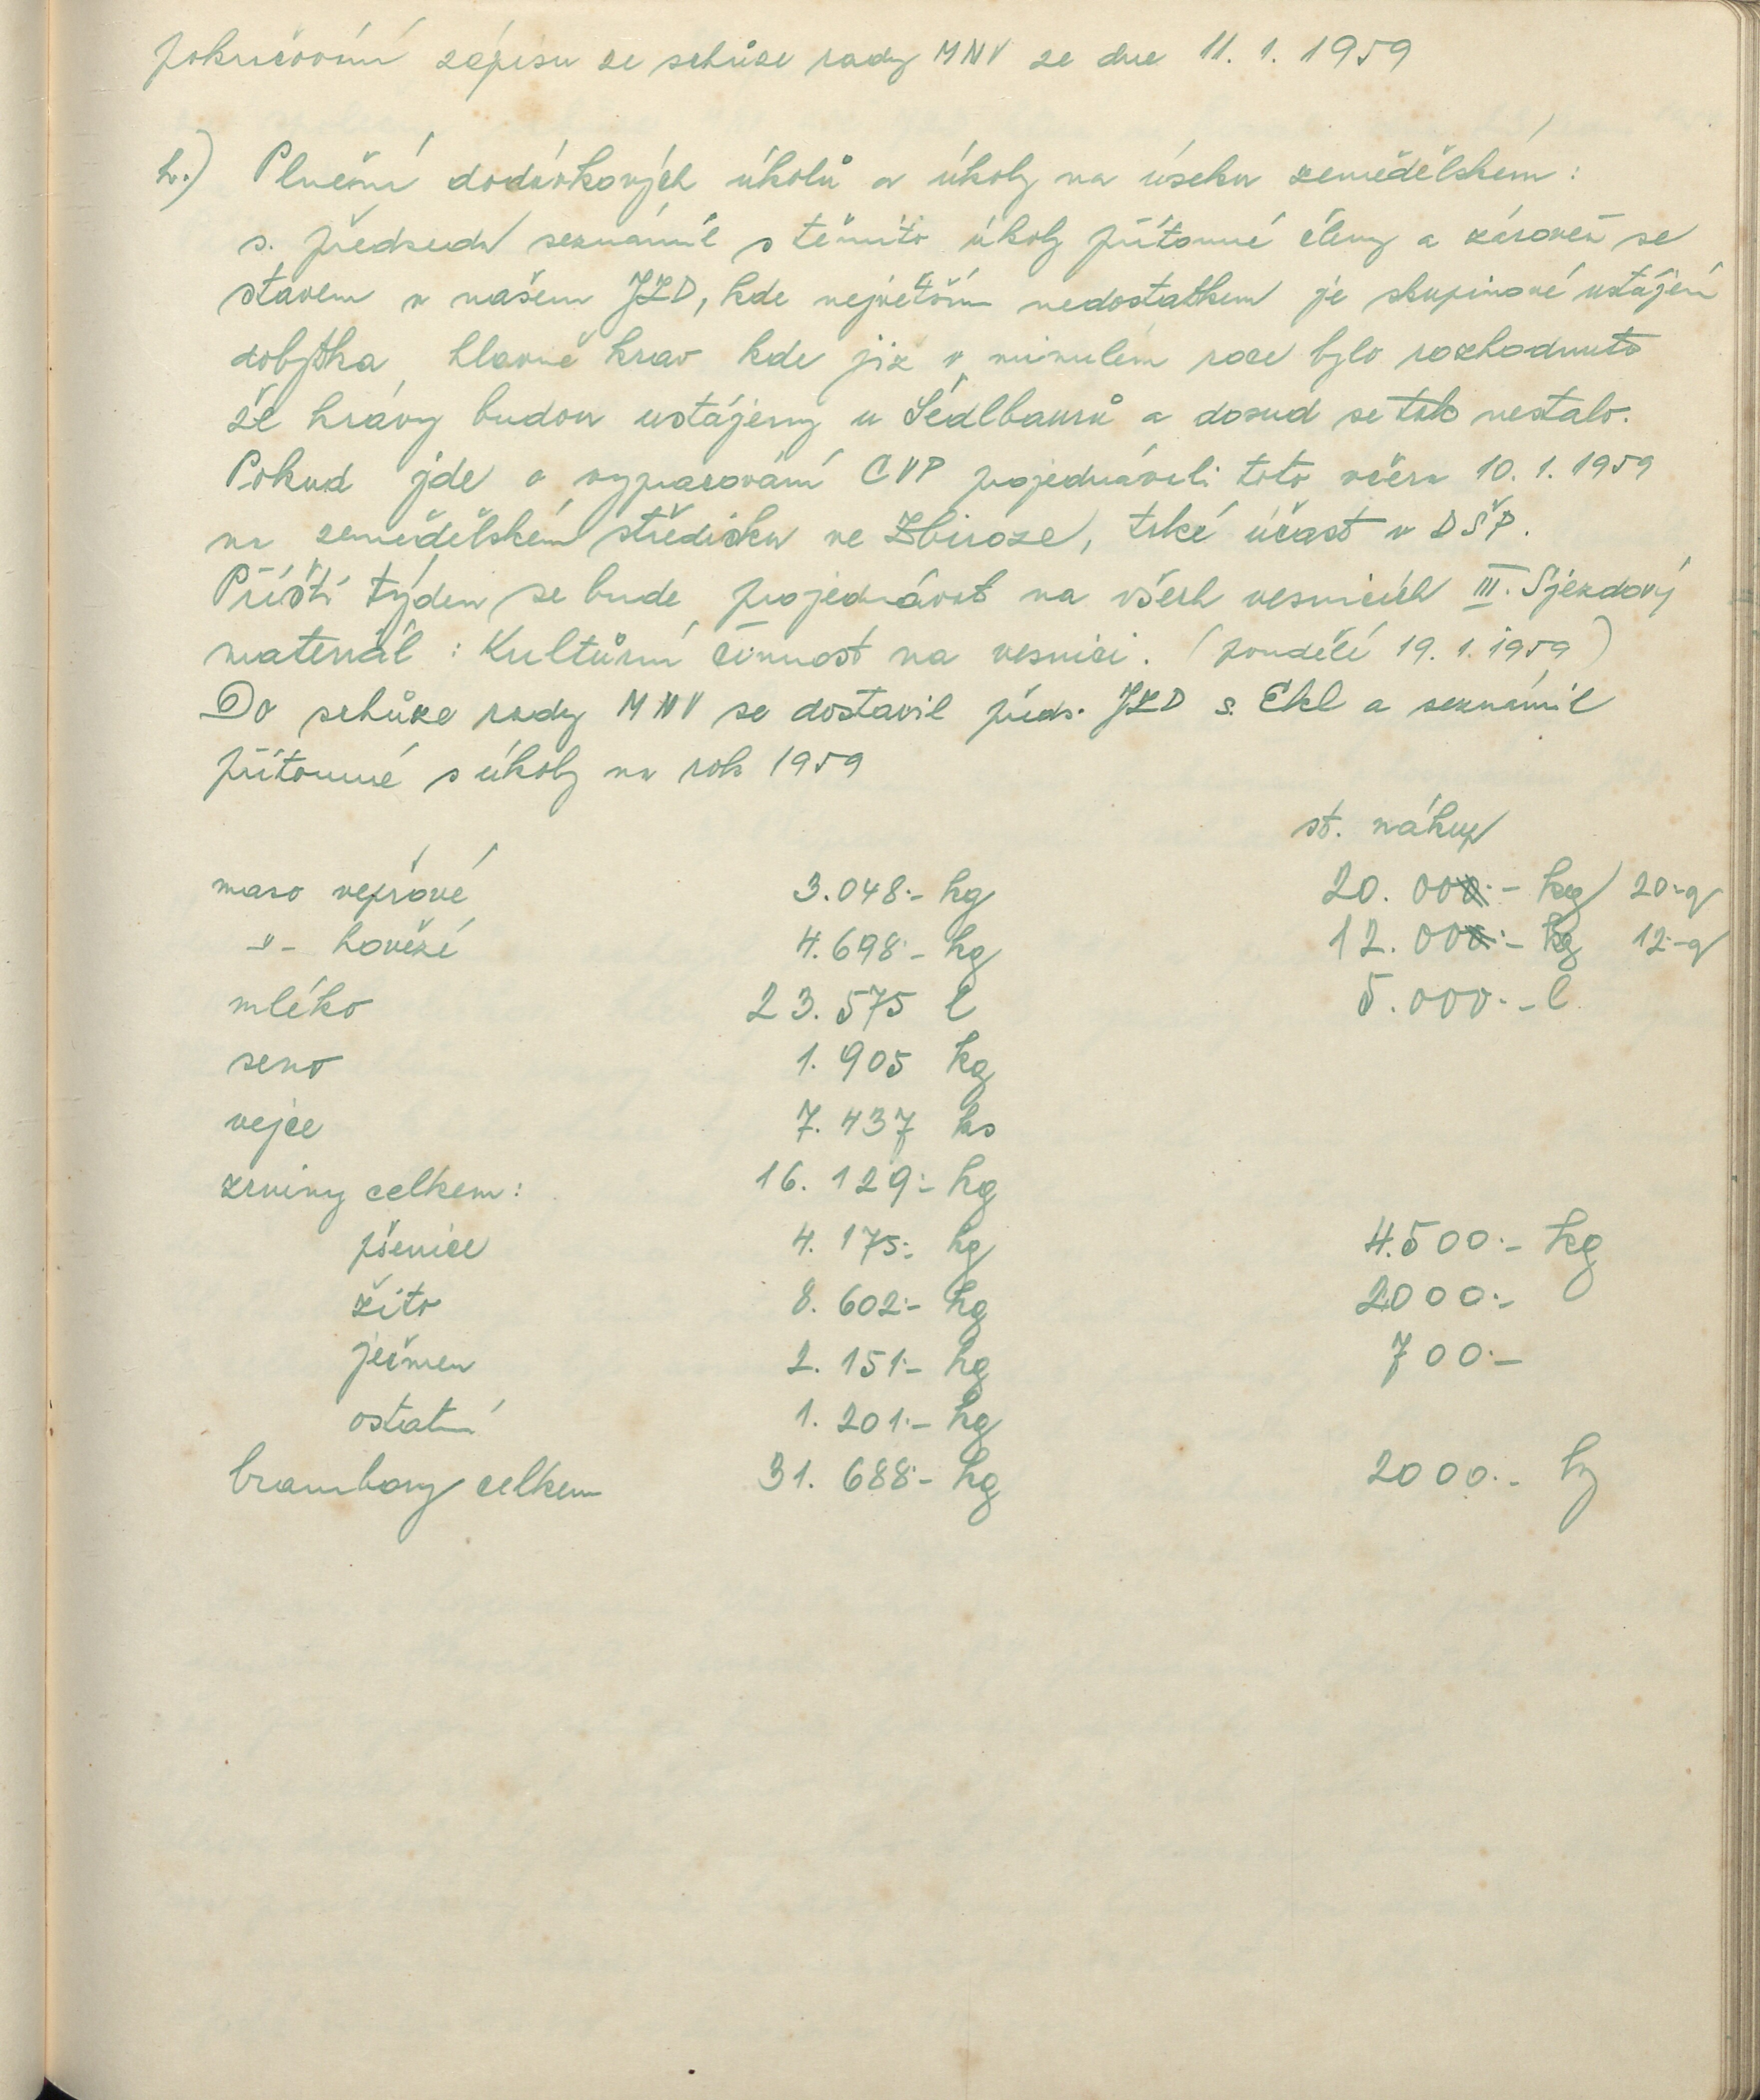 pokračování zápisu ze schůze rady MNV ze dne 11. 1. 1959
h.) Plnění dodávkových úkolů a úkoly na úseku zemědělském :
s. předseda seznámil s těmito úkoly přítomné členy a zároveň se
stavem v našem JZD, kde největším nedostatkem je skupinové ustájení
dobytka hlavně krav kde již v minulém roce bylo rozhodnuto
že krávy budou ustájeny u Sedlbauerů a dosud se tak nestalo.
Pokud jde o vypracování CVP projednávali toto včera 10. 1. 1959
na zemědělském středisku ve Zbiroze, také účast v DŠP.
Příští týden se bude projednávat na všech vesnicích III. Sjezdový
materiál : Kultůrní činnost na vesnici. (pondělí 19. 1. 1959)
Do schůze rady MNV se dostavil předs. JZD s. Ekl a seznámil
přítomné s úkoly na rok 1959
st. nákup
maso vepřové 3.048.- kg 20.000.- kg 20.-q
-"- hovězí 4.698.- kg 12.000.- kg 12.-q
mléko 23.575 l 5.000.- l
seno 1.905 kg
vejce 7.437 ks
zrniny celkem : 16.129.- kg
pšenice 4.175.- kg 4.500.- kg
žito 8.602.- kg 2000.-
ječmen 2.151.- kg 700.-
ostatní 1.201.- kg
brambory celkem 31.688.- kg 2000.- kg